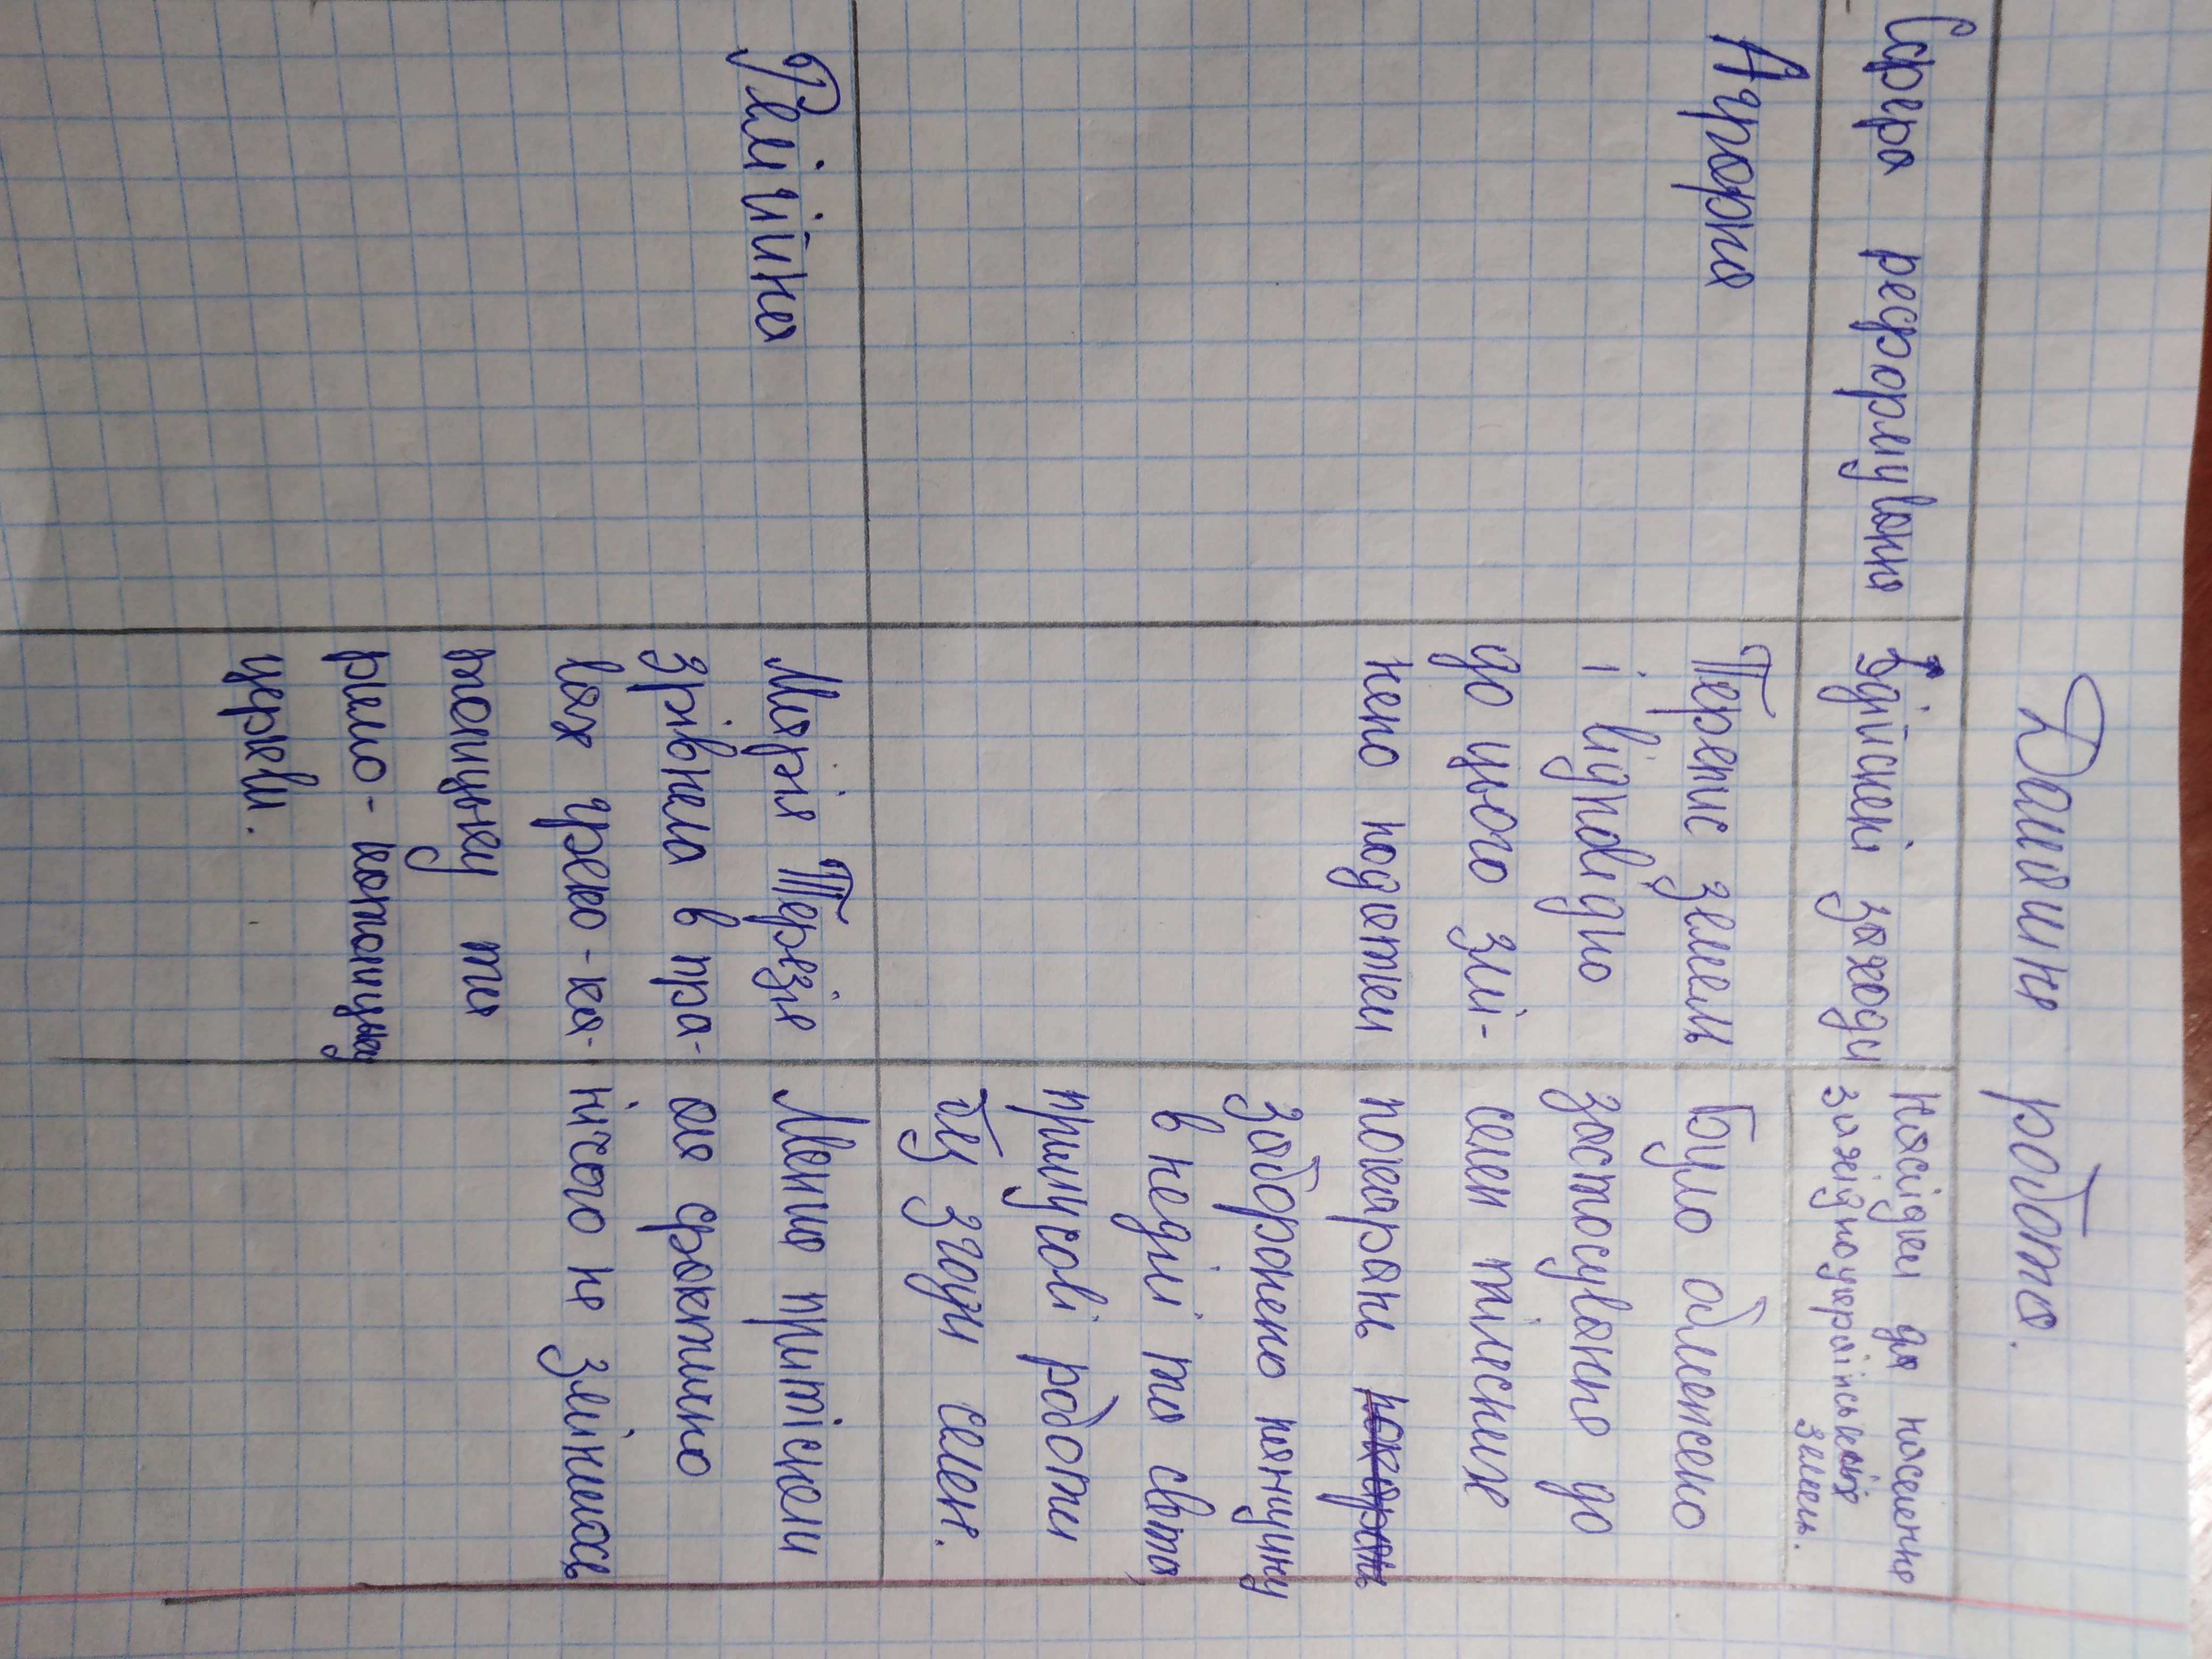 Домашня робота.
Сфера реформування
Здійснені заходи
Наслідки для населення
західноукраїнських
земель.
Аграрна
Перепис земель
і відповідно
до цього змі-
нено податки
Було обмежено
застосування до
селян тілесних
покарань покарань
заборонено панщину
в неділі та свята,
примусові роботи
без згоди селян.
Релігійна
Марія Терезія
зрівняла в пра-
вах греко-ка-
толицьку та
римо-католицьку
церкви.
Мали притіснен
але фактично
нічого не змінилось